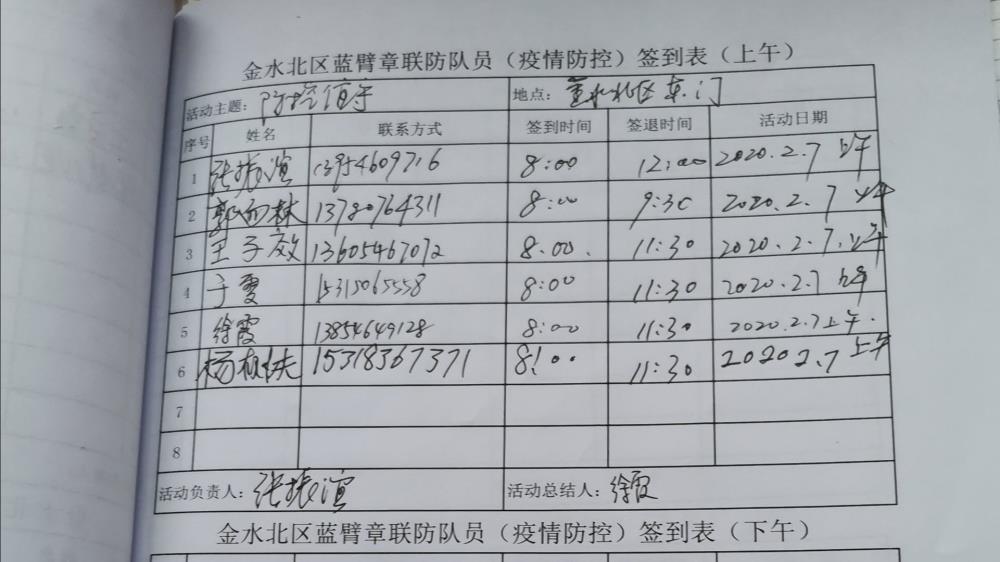 金水北区蓝臂章联防队员（疫情防控）签到表（上午）
活动主题：防控值守 地点：金水北区东门
序号 姓名 联系方式 签到时间 签退时间 活动日期
1 张振谊 13954609716 8:00 12:00 2020.2.7 上午
2 郭 林 13780764311 8:00 9:30 2020.2.7 上午
3 王子效 13605467072 8.00. 11:30 2020.2.7.上午
4 于雯 15315065558 8:00 11:30 2020.2.7 上午
5 徐霞 13854649128 8:00 11:30 2020.2.7上午.
6 杨 15318367371 8:00 11:30 2020 2.7 上午
7
8
活动负责人：张振谊 活动总结人：徐霞
金水北区蓝臂章联防队员（疫情防控）签到表（下午）